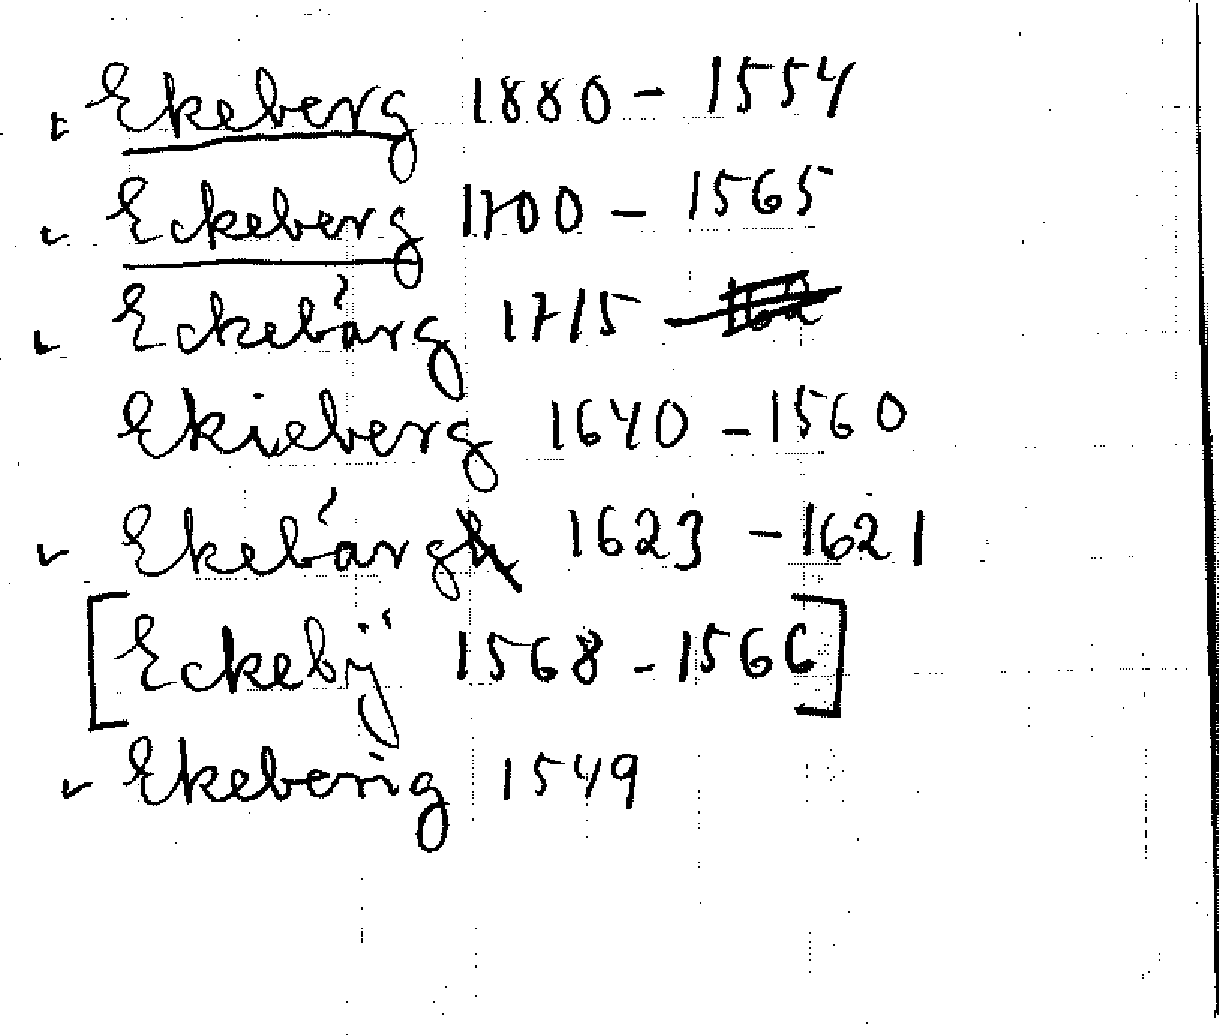 Ekeberg 1880 - 1554
Eckeberg 1700 - 1565
Eckebårg 1715
Ekieberg 1640 - 1560
Ekebårg 1623 - 1621
[Eckebÿ 1568 - 1566]
Ekeberig 1549